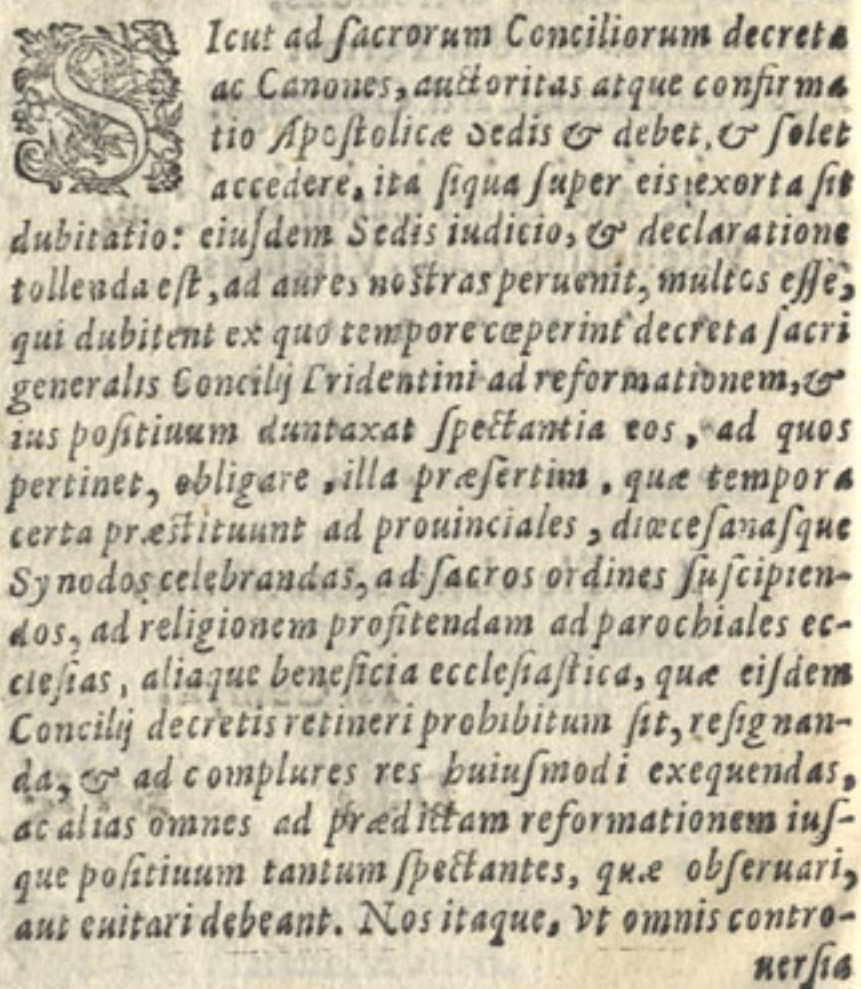 SIcut ad ſacrorum Conciliorum decreta
ac Canones, auctoritas atque confirma
tio Apoſtolicæ Sedis & debet, & ſolet
accedere, ita ſiqua ſuper eis exorta ſit
dubitatio: eiuſdem Sedis iudicio, & declaratione
tollenda eſt, ad aures noſtras peruenit, multos eſſe,
qui dubitent ex quo tempore cœperint decreta ſacri
generalis Concilij Tridentini ad reformationem, &
ius poſitiuum duntaxat ſpectantia eos, ad quos
pertinet, obligare, illa præſertim, quæ tempora
certa præſtituunt ad prouinciales, diœceſanaſque
Synodos celebrandas, ad ſacros ordines ſuſcipien-
dos, ad religionem profitendam ad parochiales ec-
cleſias, aliaque beneficia eccleſiaſtica, quæ eiſdem
Concilij decretis retineri prohibitum ſit, reſignan-
da, & ad complures res huiuſmodi exequendas,
ac alias omnes ad prædictam reformationem iuſ-
que poſitiuum tantum ſpectantes, quæ obſeruari,
aut euitari debeant. Nos itaque, vt omnis contro-
uerſia